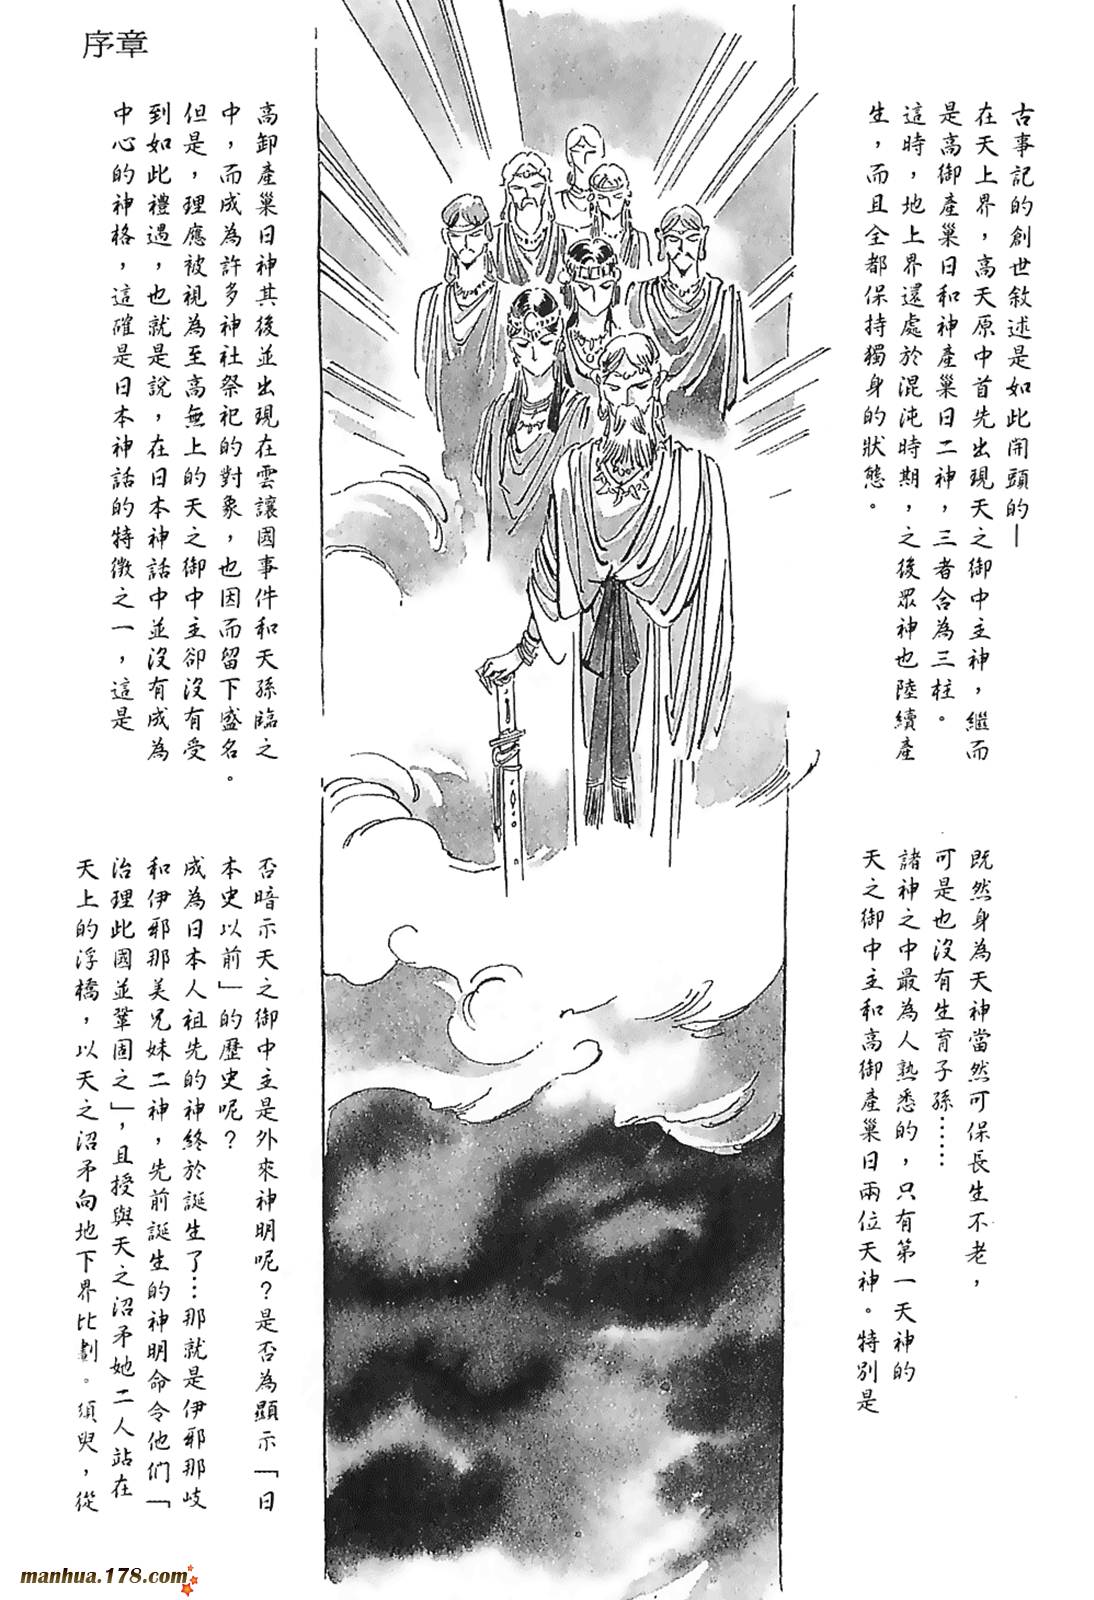 序章
古事記的創世敘述是如此開頭的—
在天上界，高天原中首先出現天之御中主神，繼而
是高御產巢日和神產巢日二神，三者合為三柱。
這時，地上界還處於混沌時期，之後眾神也陸續產
生，而且全都保持獨身的狀態。
既然身為天神當然可保長生不老，
可是也沒有生育子孫……
諸神之中最為人熟悉的，只有第一天神的
天之御中主和高御產巢日兩位天神。特別是
高卸產巢日神其後並出現在雲讓國事件和天孫臨之
中，而成為許多神社祭祀的對象，也因而留下盛名。
但是，理應被視為至高無上的天之御中主卻沒有受
到如此禮遇，也就是說，在日本神話中並沒有成為
中心的神格，這確是日本神話的特徵之一，這是
否暗示天之御中主是外來神明呢？是否為顯示「日
本史以前」的歷史呢？
成為日本人祖先的神終於誕生了…那就是伊邪那岐
和伊邪那美兄妹二神，先前誕生的神明命令他們「
治理此國並鞏固之」，且授與天之沼矛她二人站在
天上的浮橋，以天之沼矛向地下界比劃。須臾，從
manhua.178.com